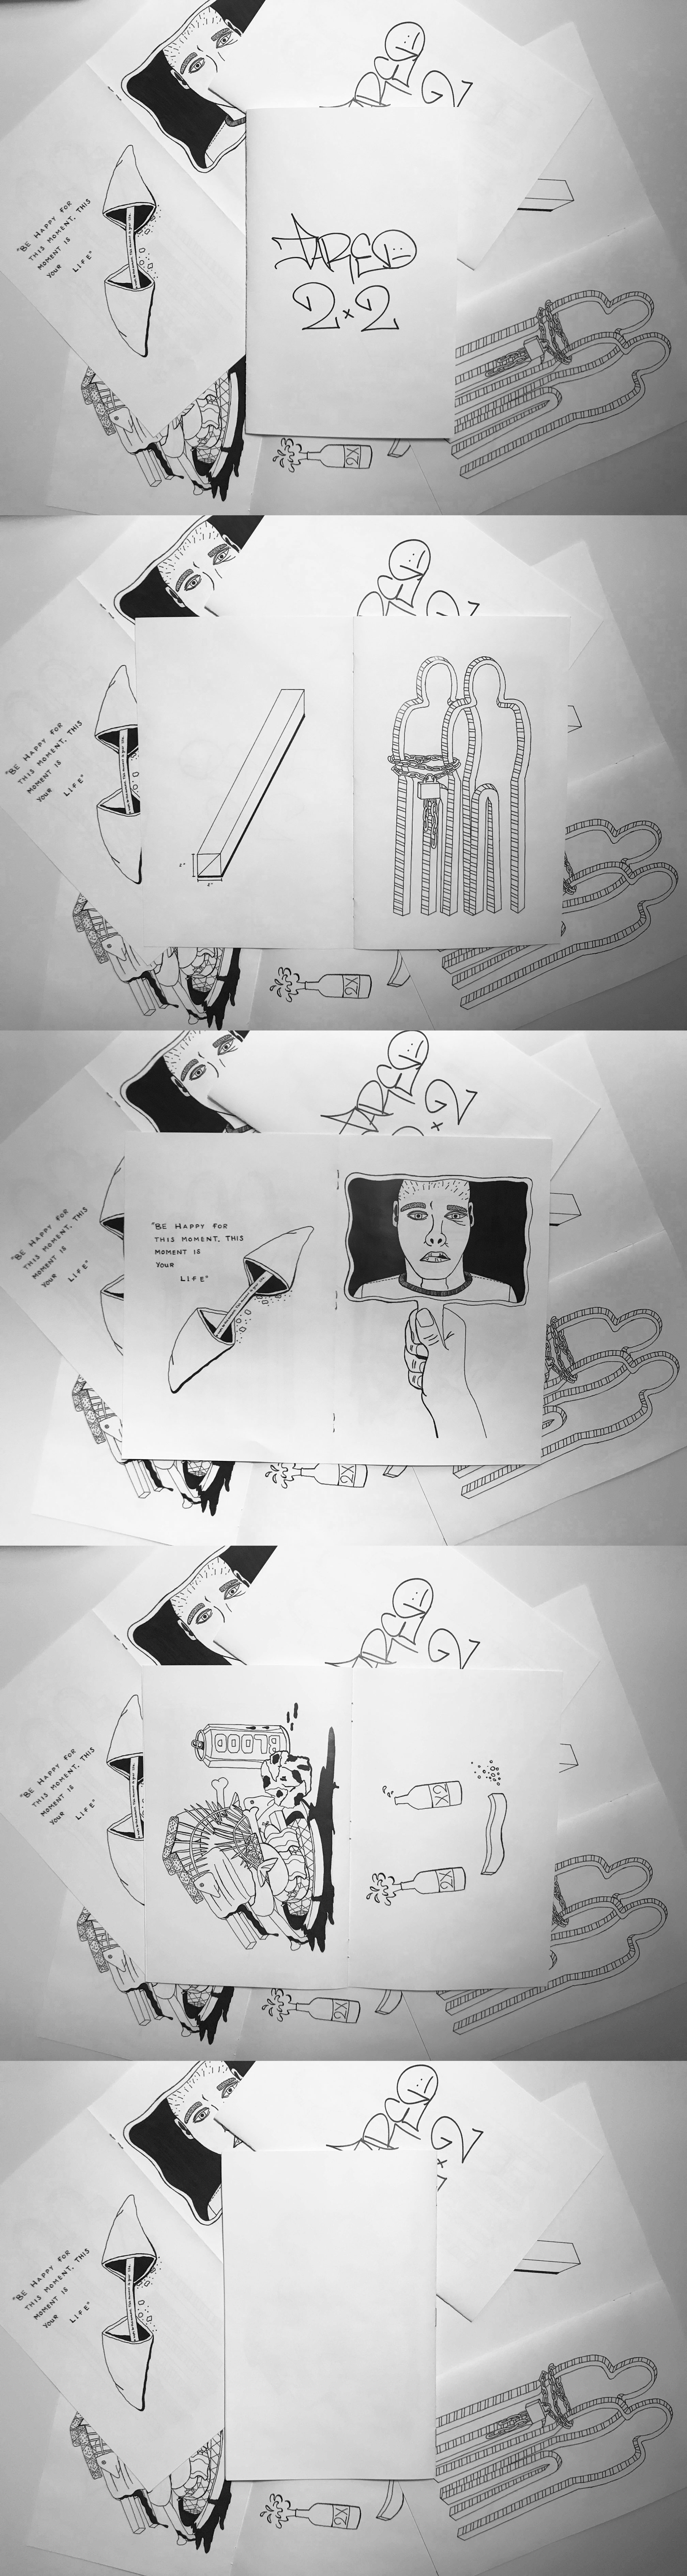 "BE HAPPY FOR
THIS MOMENT, THIS
MOMENT IS
YOUR LIFE"
JARED
2x2
2X
"BE HAPPY FOR
THIS MOMENT, THIS
MOMENT IS
YOUR LIFE"
4"
4"
2X
"BE HAPPY FOR
THIS MOMENT, THIS
MOMENT IS
YOUR LIFE"
"BE HAPPY FOR
THIS MOMENT, THIS
MOMENT IS
YOUR
LIFE"
2X
"BE HAPPY FOR
THIS MOMENT, THIS
MOMENT IS
YOUR LIFE"
BLOOD
2X
2X
2X
"BE HAPPY FOR
THIS MOMENT, THIS
MOMENT IS
YOUR LIFE"
2X